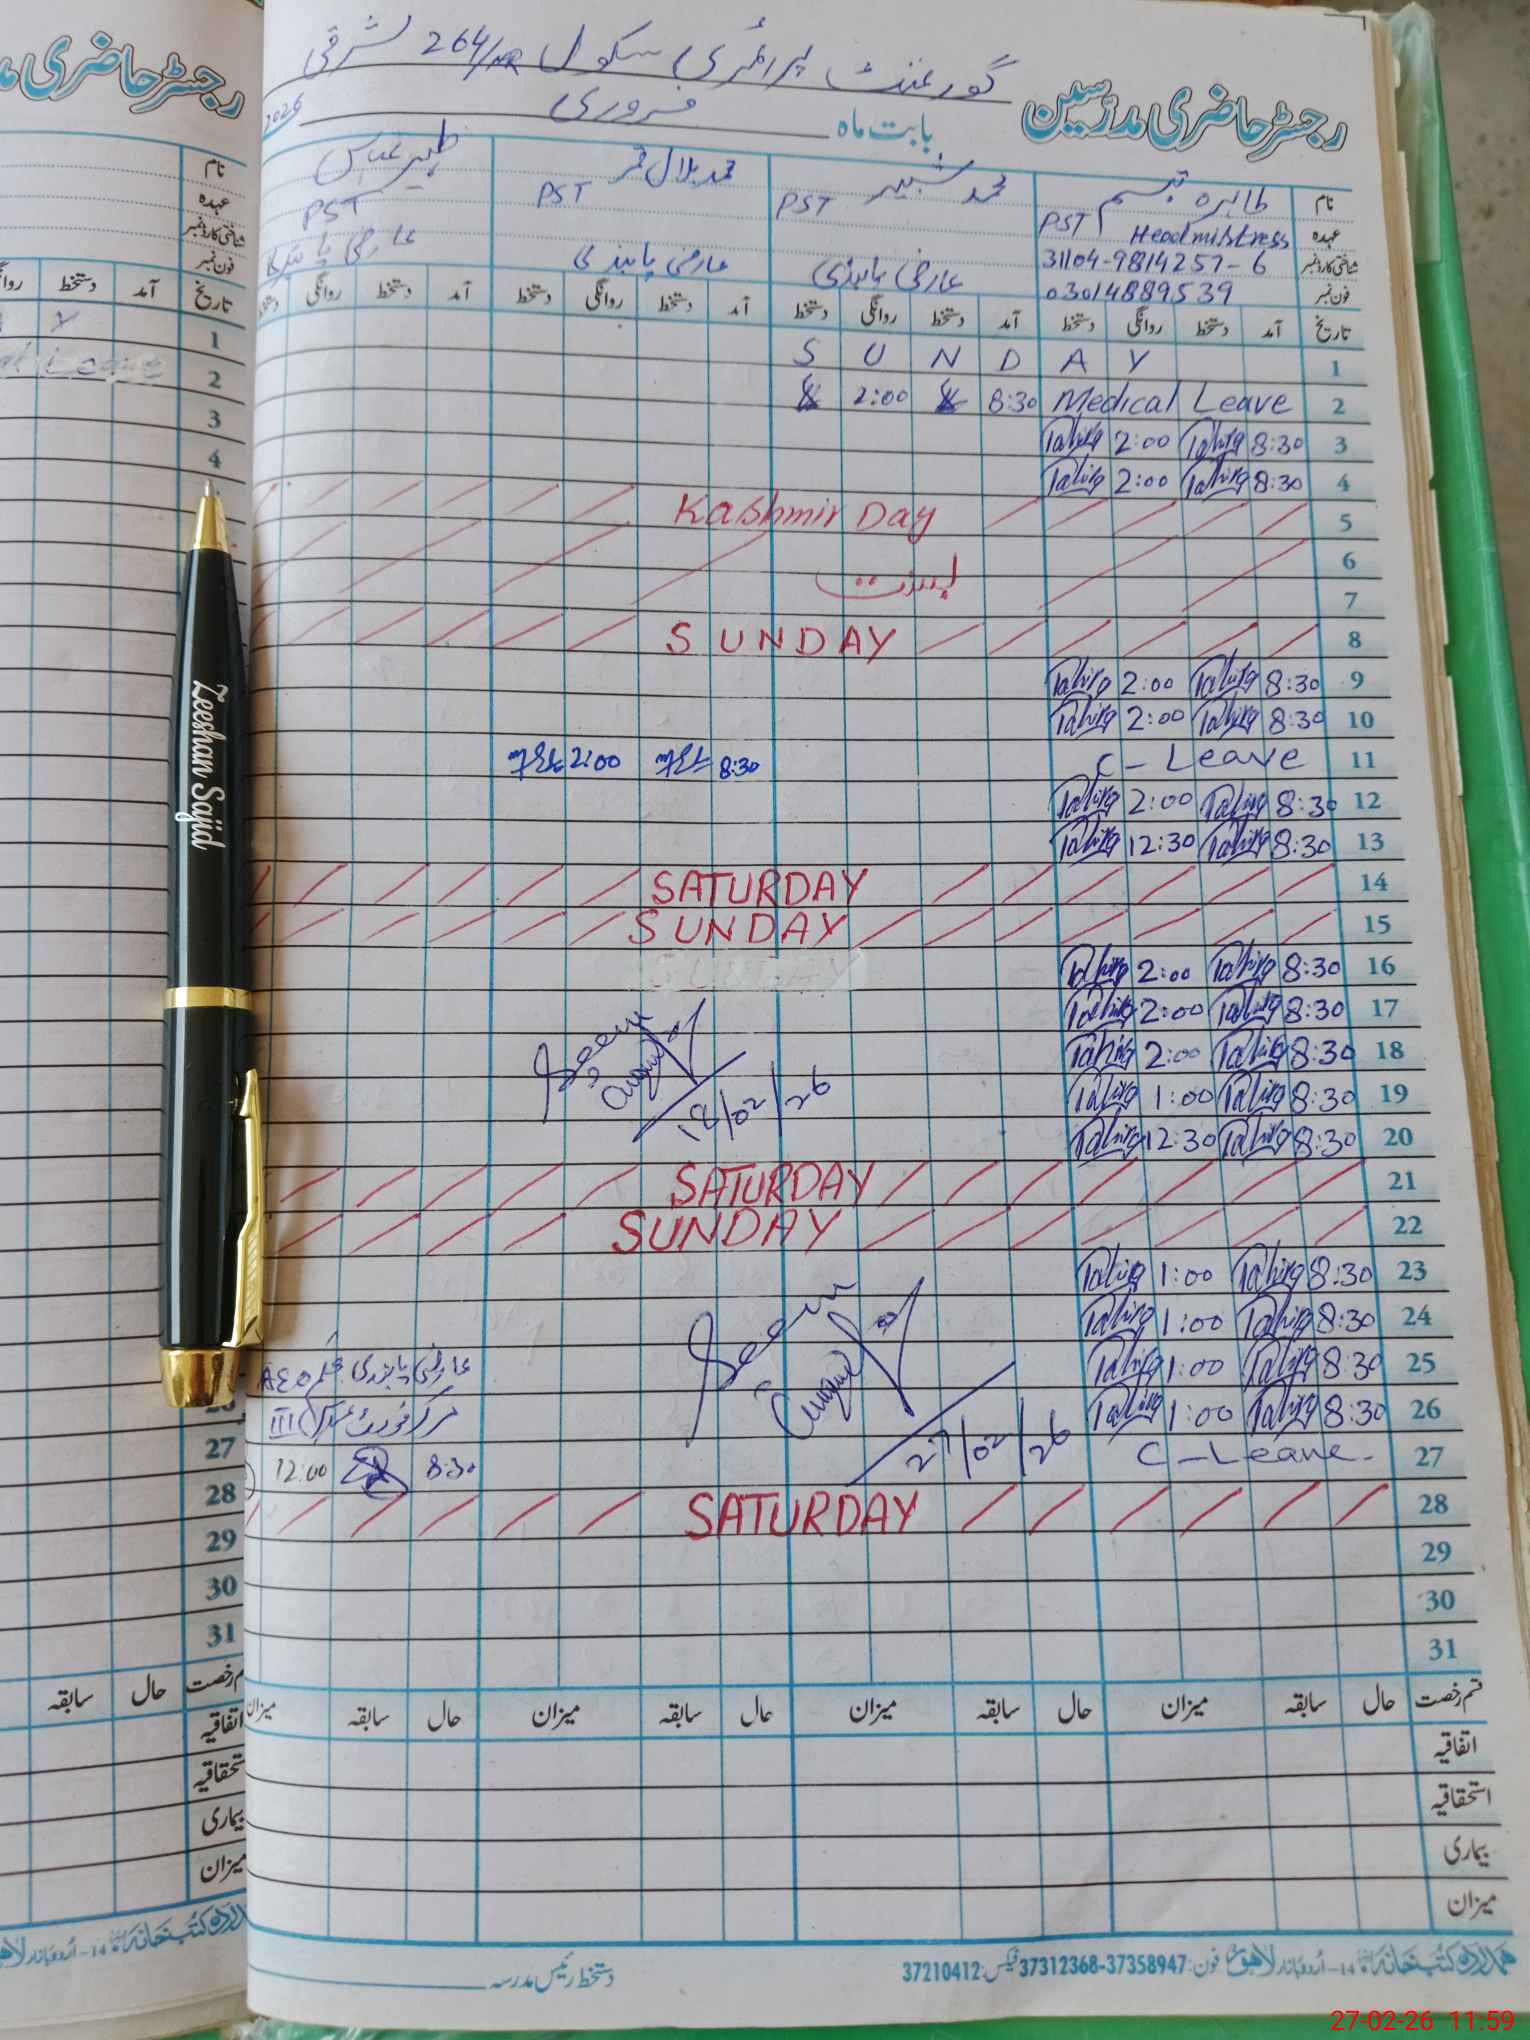 رجسٹر حاضری مدرسین
گورنمنٹ پرائمری سکول 264/NR شرقی
بابت ماہ فروری 2026
نام طاہرہ تبسم محمد شبیر محمد بلال قمر ظہیر عباس
عہدہ PST Headmistress PST PST PST
شناختی کارڈ نمبر 31104-9814257-6 عارضی پابندی عارضی پابندی عارضی پابندی
فون نمبر 03014889539
تاریخ آمد دستخط روانگی دستخط آمد دستخط روانگی دستخط آمد دستخط روانگی دستخط آمد دستخط روانگی دستخط
1 S U N D A Y
2 Medical Leave 8:30 2:00
3 8:30 Tahira 2:00 Tahira
4 8:30 Tahira 2:00 Tahira
5 Kashmir Day
6
7 بسنت
8 SUNDAY
9 8:30 Tahira 2:00 Tahira
10 8:30 Tahira 2:00 Tahira
11 C-Leave 8:30 2:00
12 8:30 Tahira 2:00 Tahira
13 8:30 Tahira 12:30 Tahira
14 SATURDAY
15 SUNDAY
16 8:30 Tahira 2:00 Tahira
17 8:30 Tahira 2:00 Tahira
18 8:30 Tahira 2:00 Tahira
Seen
18/02/26
19 8:30 Tahira 1:00 Tahira
20 8:30 Tahira 12:30 Tahira
21 SATURDAY
22 SUNDAY
23 8:30 Tahira 1:00 Tahira
24 8:30 Tahira 1:00 Tahira
25 8:30 Tahira 1:00 Tahira
Seen
عارضی پابندی AEO
26 8:30 Tahira 1:00 Tahira
مرکز فورٹ عباس III
27/02/26
27 C-Leave. 8:30 12:00
28 SATURDAY
29
30
31
قسم رخصت حال سابقہ میزان حال سابقہ میزان حال سابقہ میزان حال سابقہ میزان
اتفاقیہ
استحقاقیہ
بیماری
میزان
دستخط رئیس مدرسہ
ہمدرد کتب خانہ 14-اُردو بازار لاہور فون: 37312368-37358947 فیکس: 37210412
رجسٹر حاضری مد
نام
عہدہ
شناختی کارڈ نمبر
فون نمبر
تاریخ آمد دستخط روانگی
1
2 Leave
3
4
27
28
29
30
31
رخصت حال سابقہ
اتفاقیہ
استحقاقیہ
بیماری
میزان
کتب خانہ 14-اُردو بازار
Zeeshan Sajid
27-02-26 11:59